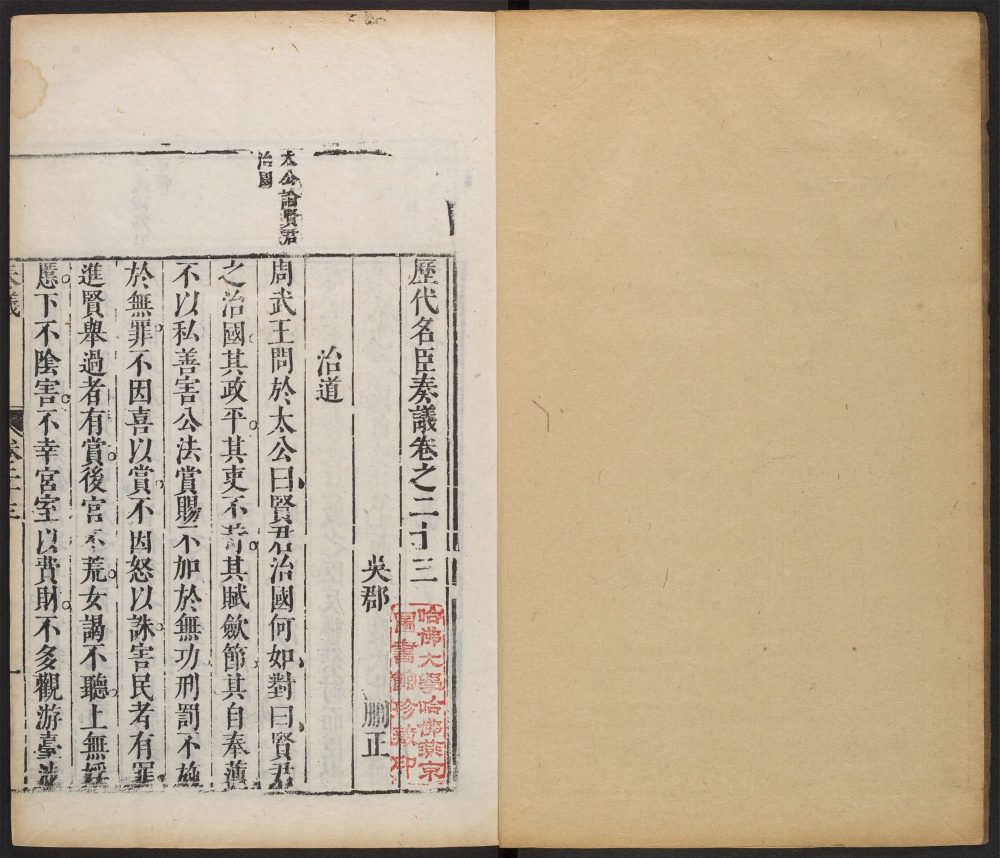 歷代名臣奏議卷之二十三
吳郡 鵬正
哈佛大學哈佛燕京
圖書館珍藏印
治道
太公論賢君
治國
周武王問於太公曰賢君治國何如對曰賢君
之治國其政平其吏不苛其賦歛節其自奉薄
不以私善害公法賞賜不加於無功刑罰不施
於無罪不因喜以賞不因怒以誅害民者有罪
進賢舉過者有賞後宮不荒女謁不聽上無婬
慝下不陰害不幸宮室以費財不多觀游臺
奏議
卷二十三
一